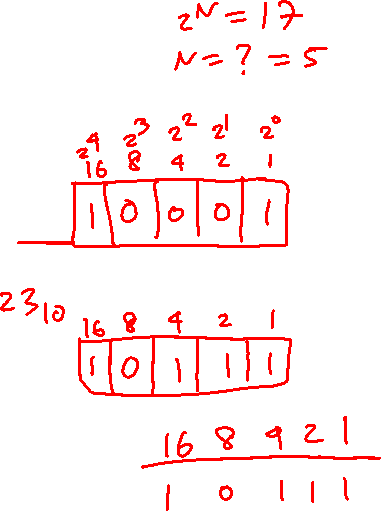 2^N = 17
N = ? = 5
2^4 2^3 2^2 2^1 2^0
16 8 4 2 1
1 0 0 0 1
23₁₀ 16 8 4 2 1
1 0 1 1 1
16 8 4 2 1
1 0 1 1 1